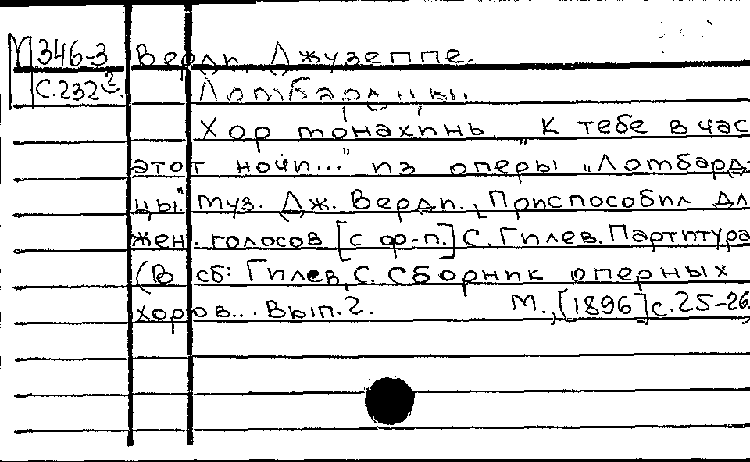 М 346-3 Верди, Джузеппе.
С.232² Ломбардцы.
Хор монахинь "К тебе в час
этот ночи..." из оперы "Ломбард-
цы" муз. Дж. Верди. Приспособил дл
жен. голосов [с ф-п.] С. Гилев. Партитура
(В сб: Гилев, С. Сборник оперных
хоров... Вып.2. М., [1896] с.25-26